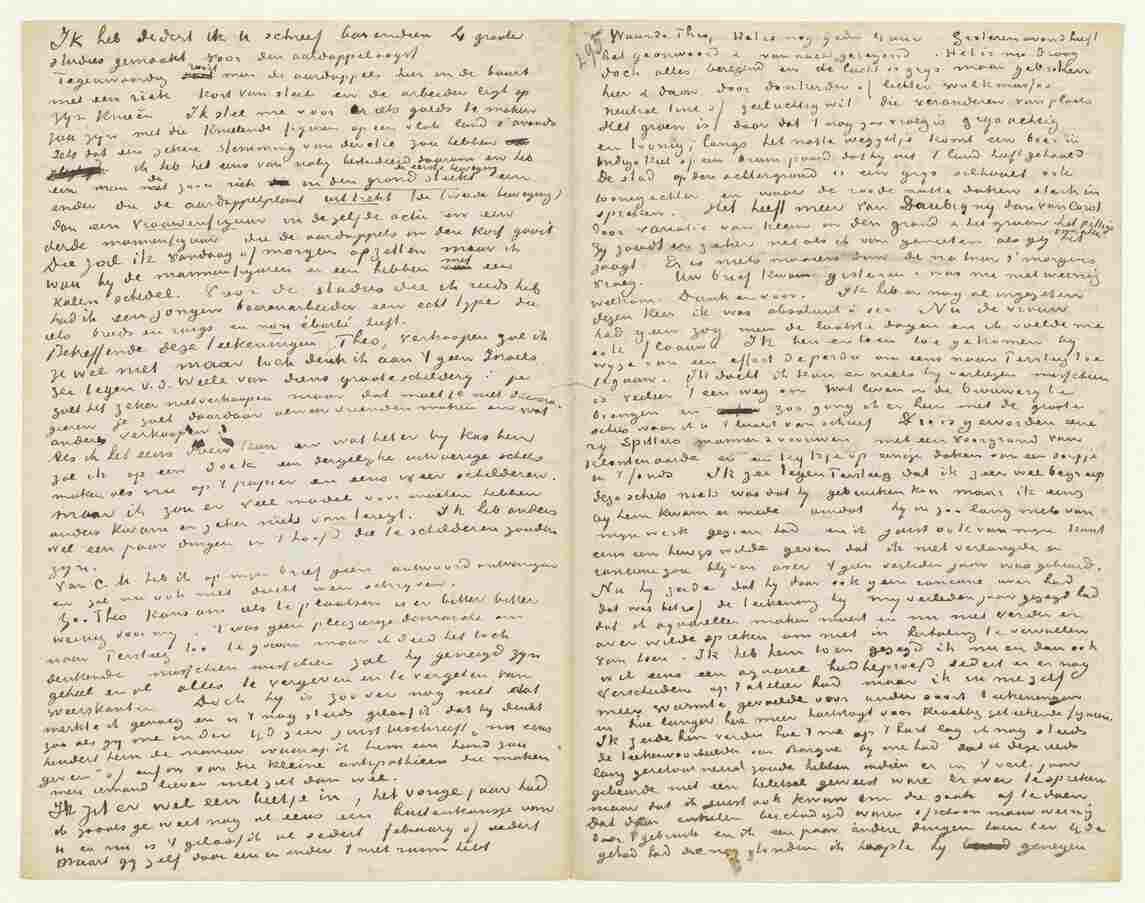 Ik heb sedert ik u schreef bovendien 4 groote
studies gemaakt voor den aardappeloogst
Tegenwoordig rooit men de aardappels hier in de buurt
met een riek kort van steel en de arbeider ligt op
zijn knieen Ik stel me voor er iets goeds te maken
zou zijn met die knielende figuren op een vlak land s'avonds
Iets dat een zekere stemming van devotie zou hebben
ik heb het eens van nabij bestudeerd daarom en heb
een man die zoo'n riek in den grond steekt de eerste beweging een
ander die de aardappelplant uittrekt (de tweede beweging)
dan een vrouwenfiguur in dezelfde actie en een
derde mannenfiguur die de aardappels in den korf gooit
Die zal ik vandaag of morgen opzetten maar ik
wou bij de mannenfiguren er een hebben met een
kalen schedel. Voor de studies die ik reeds heb
had ik een jongen boerenarbeider een echt type die
iets breeds en ruigs en non ébarbé heeft.
Betreffende deze teekeningen, Theo, verkoopen zal ik
ze wel niet maar toch denk ik aan 't geen Israels
zei tegen v.d. Weele van diens groote schilderij: je
zult het zeker niet verkoopen maar dat moet je niet decoura-
geren je zult daardoor uw vrienden maken en wat
anders verkoopen
Als ik het eens doen kan en wat beter bij kas ben
zal ik op een doek een dergelijke uitvoerige schets
maken als nu op 't papier en eens weer schilderen.
maar ik zou er veel model voor moeten hebben
anders kwam er zeker niets van teregt. Ik heb anders
wel een paar dingen in 't hoofd die te schilderen zouden
zijn.
Van C.M. heb ik op mijn brief geen antwoord ontvangen
en zal nu ook niet dadelijk weer schrijven.
Zoo Theo kans om iets te plaatsen is er bitter bitter
weinig voor mij. 't was geen plezierige demarche om
naar Tersteeg toe te gaan maar ik deed het toch
denkende misschien misschien zal hij geneigd zijn
geheel en al alles te vergeven en te vergeten van
weerskanten. Doch hij is zoo ver nog niet dat
merkte ik genoeg en is 't nog steeds geloof ik dat hij denkt
zoo als gij me in der tijd zeer juist beschreeft nu eens
hindert hem de manier waarop ik hem een hand zou
geven of enfin van die kleine antipathieen die maken
men iemand liever niet ziet dan wel.
Ik zit er wel een beetje in, het vorige jaar had
ik zooals ge weet nog al eens een buitenkansje van
u en nu is 't geloof ik al sedert februarij of sedert
maart gij zelf door een en ander 't niet ruim hebt
295
Waarde Theo, Het is nog geen 4 uur Gisteren avond heeft
het geonweerd & van nacht geregend. Het is nu droog
doch alles beregend en de lucht is grijs maar gebroken
hier & daar door donkerder of lichter wolkmassas
neutral tint of geelachtig wit die veranderen van plaats
Het groen is door dat 't nog zoo vroeg is grijsachtig
en toonig; langs het natte weggetje komt een boer in
indigo kiel op een bruin paard dat hij uit 't land heeft gehaald
De stad op den achtergrond is een grijs silhouet ook
toonig echter en waar de roode natte daken sterk in
spreken. Het heeft meer van Daubigny dan van Corot
door variatie van kleur in den grond & het groen het pittige van alles
Gij zoudt er zeker net als ik van genieten als gij het
zaagt. Er is niets mooiers dan de natuur s'morgens
vroeg. Uw brief kwam gisteren & was me niet weinig
welkom. Dank er voor. Ik heb er nog al ingezeten
dezen keer ik was absoluut à sec. Nu de vrouw
had geen zog meer de laatste dagen en ik voelde me
ook flaauw. Ik ben er toen toe gekomen bij
wijze van een effort desperdu om eens naar Tersteeg toe
te gaan. Ik dacht ik kan er niets bij verliezen misschien
is 't eer 't een weg om wat leven in de brouwerij te
brengen en zoo ging ik er heen met de groote
schets waarvan ik u 't laatst van schreef Die is geworden eene
rij spitters mannen & vrouwen met een voorgrond van
klonten aarde en een kijkje op eenige daken van een dorpje
in 't fonds Ik zei tegen Tersteeg dat ik zeer wel begreep
deze schets niets was dat hij gebruiken kon maar ik eens
bij hem kwam er mede omdat hij in zoo lang niets van
mijn werk gezien had en ik juist ook van mijn kant
eens een bewijs wilde geven dat ik niet verlangde er
rancune zou blijven over 't geen verleden jaar was gebeurd.
Nu hij zeide dat hij daar ook geen rancune over had
dat wat betrof de teekening hij mij verleden jaar gezegd had
dat ik aquarellen maken moest en nu niet verder er
over wilde spreken om niet in herhaling te vervallen
van toen. Ik heb hem toen gezegd ik nu en dan ook
wel eens een aquarel had beproefd sedert en er nog
verscheiden op 't atelier had maar ik in mezelf
meer warmte gevoelde voor ander soort teekeningen
en hoe langer hoe meer hartstogt voor krachtig geteekende figuren.
Ik zeide hem verder hoe 't me op 't hart lag ik nog steeds
de teekenvoorbeelden van Bargue bij me had dat ik deze reeds
lang geretourneerd zoude hebben indien er in 't verl. jaar
gebeurde niet een beletsel geweest ware er over te spreken
maar dat ik juist ook kwam om die zaak af te doen
dat er enkelen beschadigd waren ofschoon maar weinig
door 't gebruik en ik een paar andere dingen toen ter tijde
gehad had die nog stonden ik hoopte hij genegen